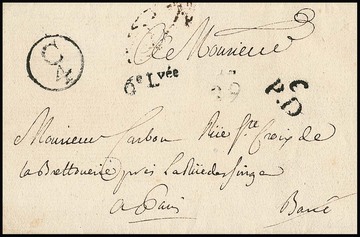 C
4
6e Lvée
C
P.D
A Monsieur
Monsieur Carbon Rüe Ste Croix de
la Brettonerie près la Rüe du Singe
a Paris